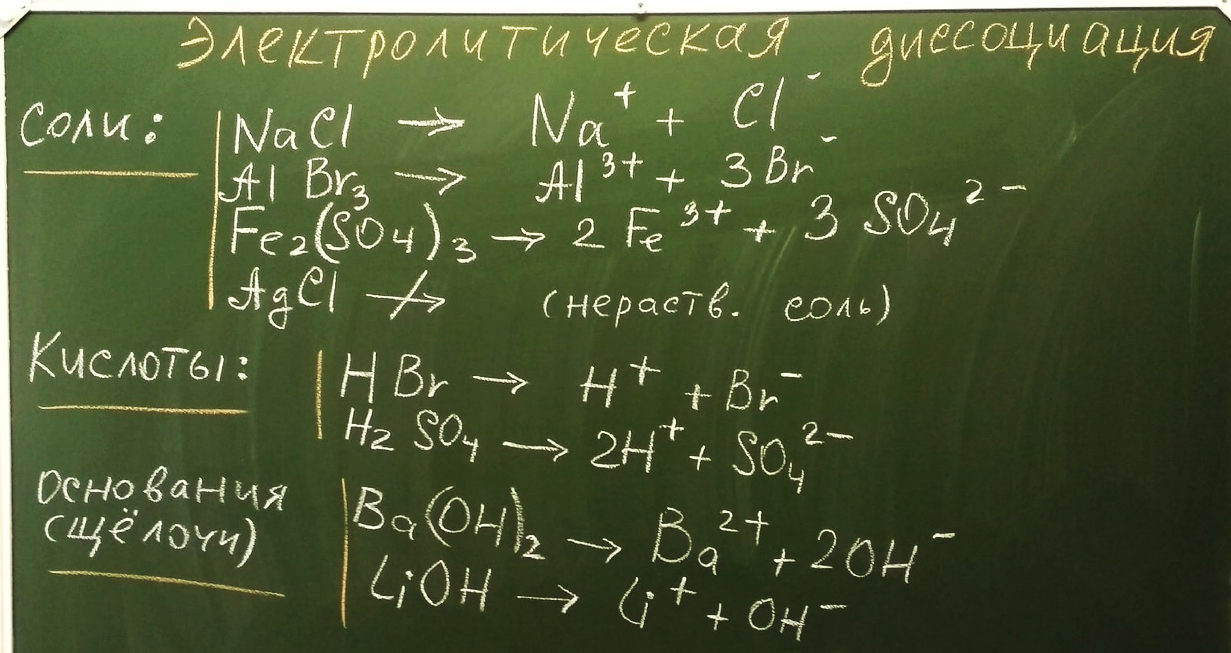 Электролитическая диссоциация
Соли: NaCl → Na⁺ + Cl⁻
AlBr₃ → Al³⁺ + 3Br⁻
Fe₂(SO₄)₃ → 2Fe³⁺ + 3SO₄²⁻
AgCl ↛ (нераств. соль)
Кислоты: HBr → H⁺ + Br⁻
H₂SO₄ → 2H⁺ + SO₄²⁻
Основания (щёлочи) Ba(OH)₂ → Ba²⁺ + 2OH⁻
LiOH → Li⁺ + OH⁻